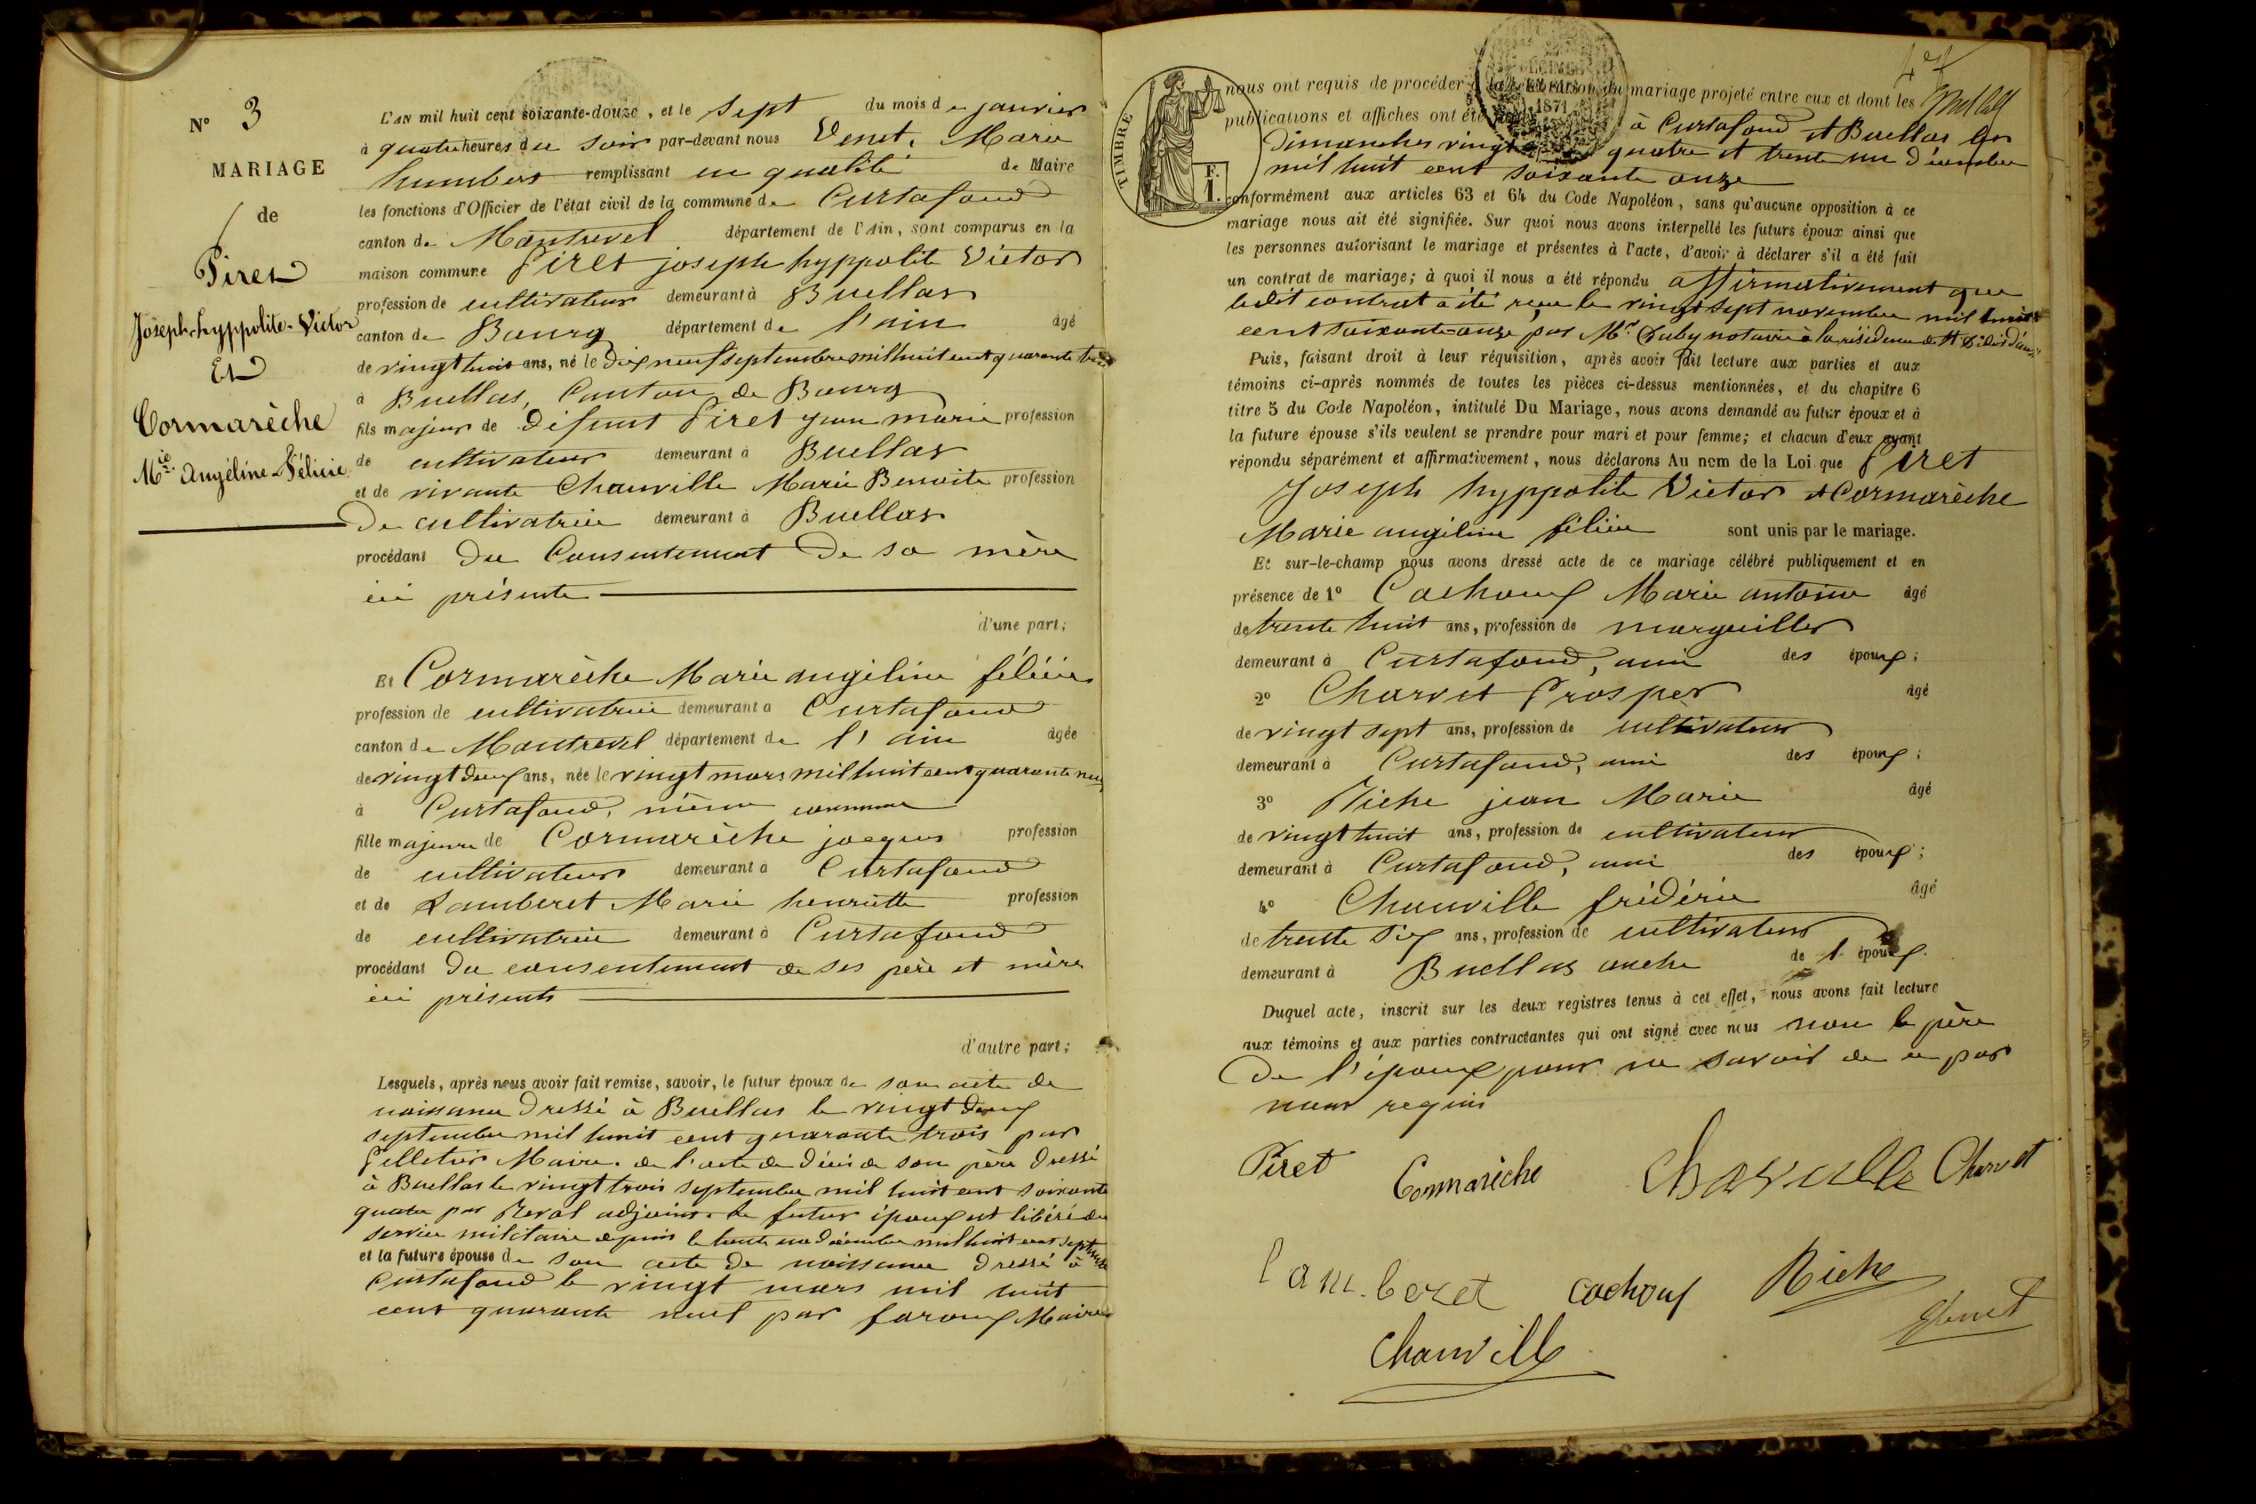 N° 3
MARIAGE
de
Piret
Joseph-hyppolite-Victor
Et
Cormarèche
Mie Angéline-Félicie
L'AN mil huit cent soixante-douze, et le sept du mois de janvier
à quatre heures du soir par-devant nous Venet, Marie
humbert remplissant en qualité de Maire
les fonctions d'Officier de l'état civil de la commune de Curtafond
canton de Montrevel département de l'Ain, sont comparus en la
maison commune Piret joseph hyppolite Victor
profession de cultivateur demeurant à Buellas
canton de Bourg département de l'ain âgé
de vingt huit ans, né le dix neuf septembre mil huit cent quarante trois
à Buellas, Canton de Bourg
fils majeur de défunt Piret jean marie profession
de cultivateur demeurant à Buellas
et de vivante Chanville Marie Benoite profession
De cultivatrice demeurant à Buellas
procédant du Consentement De sa mère
ici présente
d'une part;
Et Cormarèche Marie angéline félicie
profession de cultivatrice demeurant à Curtafond
canton de Montrevel département de l'ain âgée
de vingt deux ans, née le vingt mars mil huit cent quarante neuf
à Curtafond, même commune
fille majeure de Cormarèche jacques profession
de cultivateur demeurant à Curtafond
et de Lamberet Marie henriette profession
de cultivatrice demeurant à Curtafond
procédant du consentement de ses père et mère
ici présents
d'autre part;
Lesquels, après nous avoir fait remise, savoir, le futur époux de son acte de
naissance dressé à Buellas le vingt deux
septembre mil huit cent quarante trois par
Pelletier Maire. de l'acte de décès de son père dressé
à Buellas le vingt trois septembre mil huit cent soixante
quatre par adjoint. le futur époux est libéré du
service militaire depuis le trente un décembre mil huit cent septante
et la future épouse de son acte de naissance dressé à
Curtafond le vingt mars mil huit
cent quarante neuf par faroux Maire
TIMBRE
F.
1.
1871
nous ont requis de procéder à la célébration du mariage projeté entre eux et dont les
publications et affiches ont été à Curtafond et Buellas les
dimanches vingt quatre et trente un décembre
mil huit cent soixante onze
conformément aux articles 63 et 64 du Code Napoléon, sans qu'aucune opposition à ce
mariage nous ait été signifiée. Sur quoi nous avons interpellé les futurs époux ainsi que
les personnes autorisant le mariage et présentes à l'acte, d'avoir à déclarer s'il a été fait
un contrat de mariage; à quoi il nous a été répondu affirmativement que
ledit contrat a été reçu le vingt sept novembre mil huit
cent soixante-onze par Me Duby notaire à la résidence de St
Puis, faisant droit à leur réquisition, après avoir fait lecture aux parties et aux
témoins ci-après nommés de toutes les pièces ci-dessus mentionnées, et du chapitre 6
titre 5 du Code Napoléon, intitulé Du Mariage, nous avons demandé au futur époux et à
la future épouse s'ils veulent se prendre pour mari et pour femme; et chacun d'eux ayant
répondu séparément et affirmativement, nous déclarons Au nom de la Loi que Piret
Joseph hyppolite Victor et Cormarèche
Marie angéline félicie sont unis par le mariage.
Et sur-le-champ nous avons dressé acte de ce mariage célébré publiquement et en
présence de 1° Cachoux Marie antoine âgé
de trente huit ans, profession de marguiller
demeurant à Curtafond, ami des époux;
2° Charvet Prosper âgé
de vingt sept ans, profession de cultivateur
demeurant à Curtafond, ami des époux;
3° Riche jean Marie âgé
de vingt huit ans, profession de cultivateur
demeurant à Curtafond, ami des époux;
4° Chanville frédéric âgé
de trente six ans, profession de cultivateur
demeurant à Buellas oncle de l'époux.
Duquel acte, inscrit sur les deux registres tenus à cet effet, nous avons fait lecture
aux témoins et aux parties contractantes qui ont signé avec nous non le père
De l'épouse pour ne savoir de ce par
nous requis
Piret Cormarèche Chanville Charvet
lamberet cachoux Riche
Chanville Venet